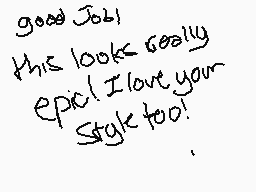 good Job!
this looks really
epic! I love your
style too!